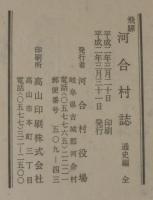 飛騨
河合村誌 通史編 全
平成二年三月二十日 印刷
平成二年三月三十一日 発行
発行者 河合村役場
岐阜県吉城郡河合村
郵便番号 五〇九―四三
電話(〇五七七六)五―二二二一
印刷所 高山印刷株式会社
高山市本町三丁目
電話(〇五七七)三二―一五〇〇